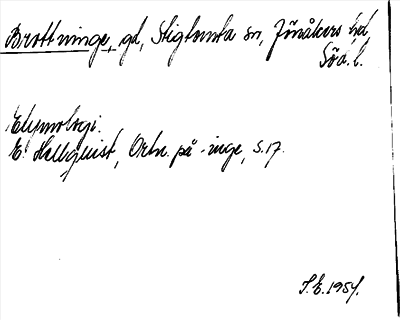 Brottninge, gd, Stigtomta sn, Jönåkers hd,
Söd. l.
Etymologi.
E. Hellquist, Ortn. på -inge, s. 17.
S.E. 1954.